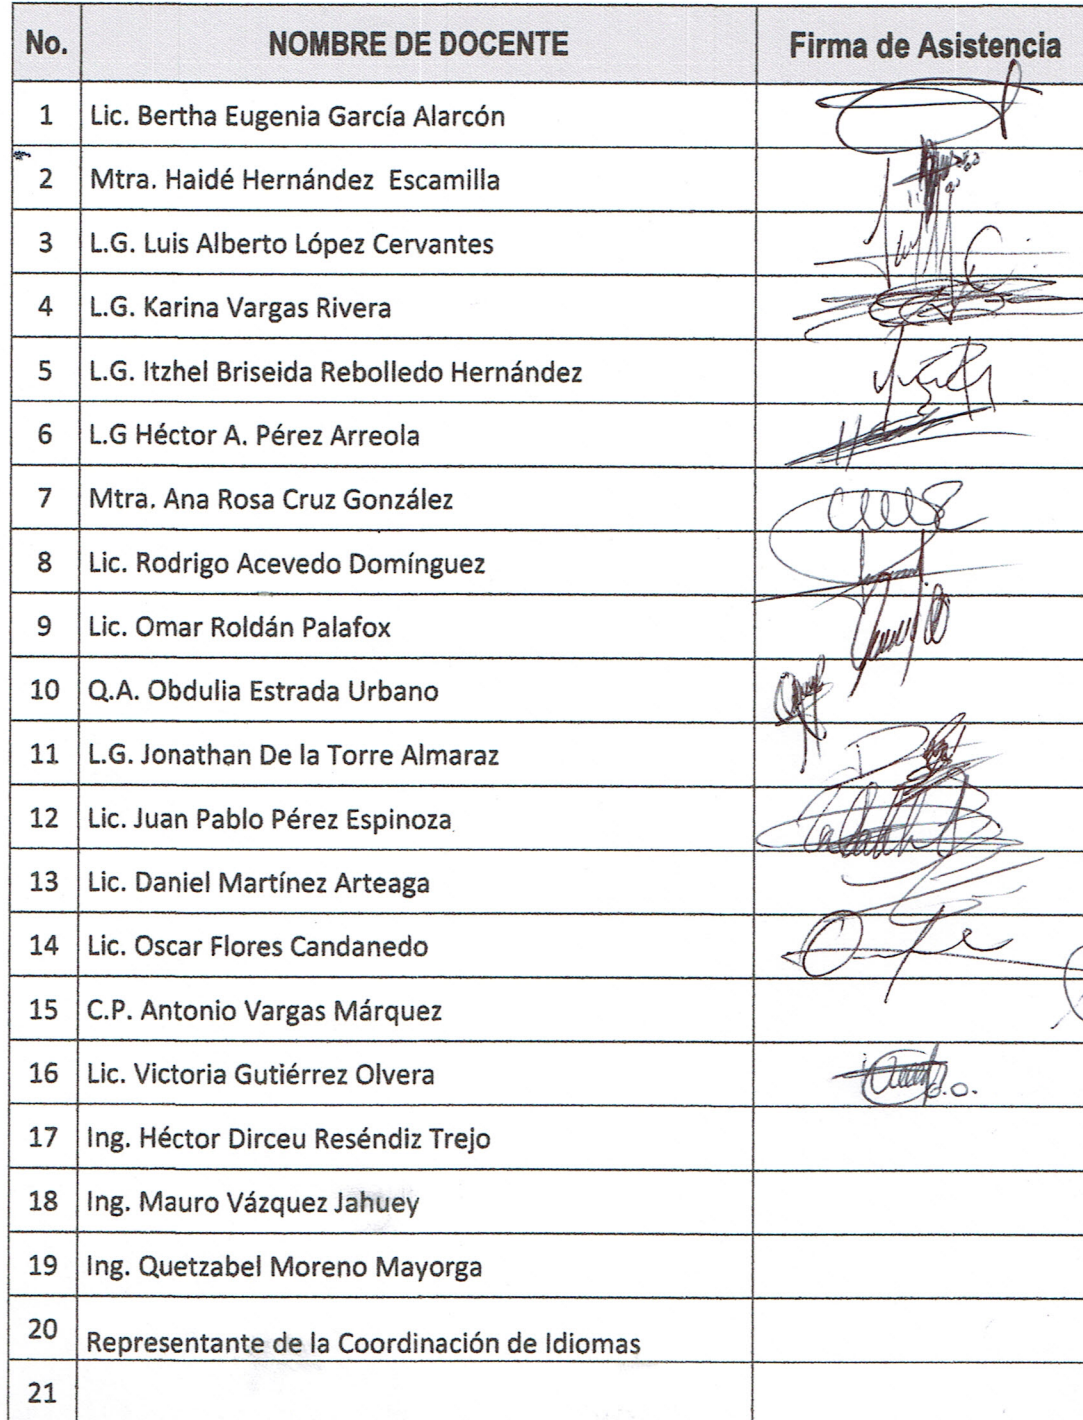 No. NOMBRE DE DOCENTE Firma de Asistencia
1 Lic. Bertha Eugenia García Alarcón
2 Mtra. Haidé Hernández Escamilla
3 L.G. Luis Alberto López Cervantes
4 L.G. Karina Vargas Rivera
5 L.G. Itzhel Briseida Rebolledo Hernández
6 L.G Héctor A. Pérez Arreola
7 Mtra. Ana Rosa Cruz González
8 Lic. Rodrigo Acevedo Domínguez
9 Lic. Omar Roldán Palafox
10 Q.A. Obdulia Estrada Urbano
11 L.G. Jonathan De la Torre Almaraz
12 Lic. Juan Pablo Pérez Espinoza
13 Lic. Daniel Martínez Arteaga
14 Lic. Oscar Flores Candanedo
15 C.P. Antonio Vargas Márquez
16 Lic. Victoria Gutiérrez Olvera
17 Ing. Héctor Dirceu Reséndiz Trejo
18 Ing. Mauro Vázquez Jahuey
19 Ing. Quetzabel Moreno Mayorga
20 Representante de la Coordinación de Idiomas
21